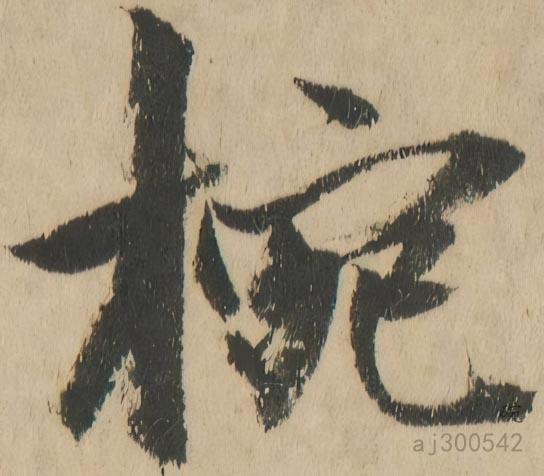 椀
aj300542